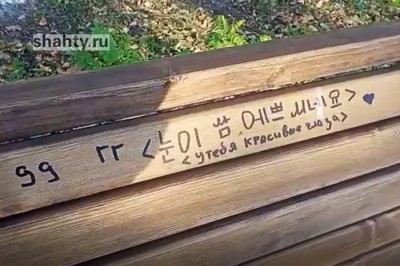 shahty.ru
gg гг <눈이 쌈 에쁘시네요>
<у тебя красивые глаза>